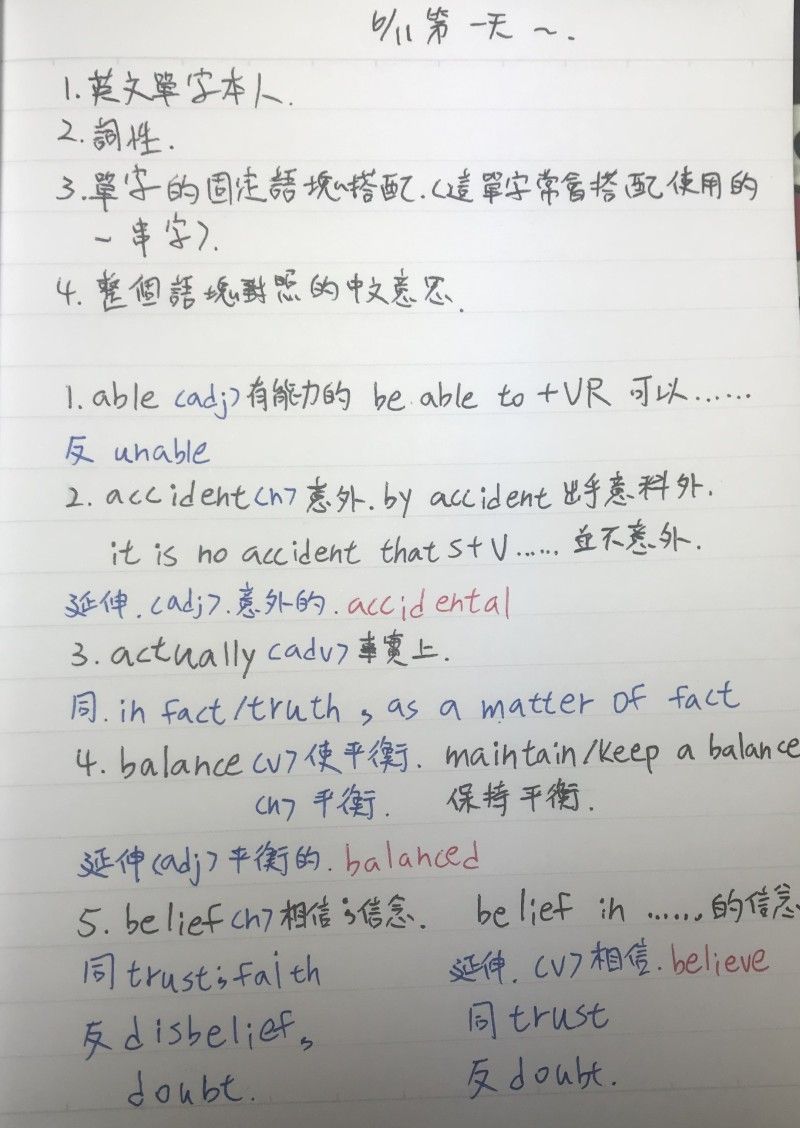 6/11 第一天 ~.
1. 英文單字本人.
2. 詞性.
3. 單字的固定語塊搭配. (這單字常會搭配使用的
一串字).
4. 整個語塊對照的中文意思.
1. able (adj) 有能力的 be able to + VR 可以......
反 unable
2. accident (n) 意外. by accident 出乎意料外.
it is no accident that S+V...... 並不意外.
延伸. (adj). 意外的. accidental
3. actually (adv) 事實上.
同. in fact/truth, as a matter of fact
4. balance (v) 使平衡. maintain/keep a balance
(n) 平衡. 保持平衡.
延伸 (adj) 平衡的. balanced
5. belief (n) 相信;信念. belief in ...... 的信念
同 trust;faith 延伸. (v) 相信. believe
反 disbelief, 同 trust
doubt. 反 doubt.